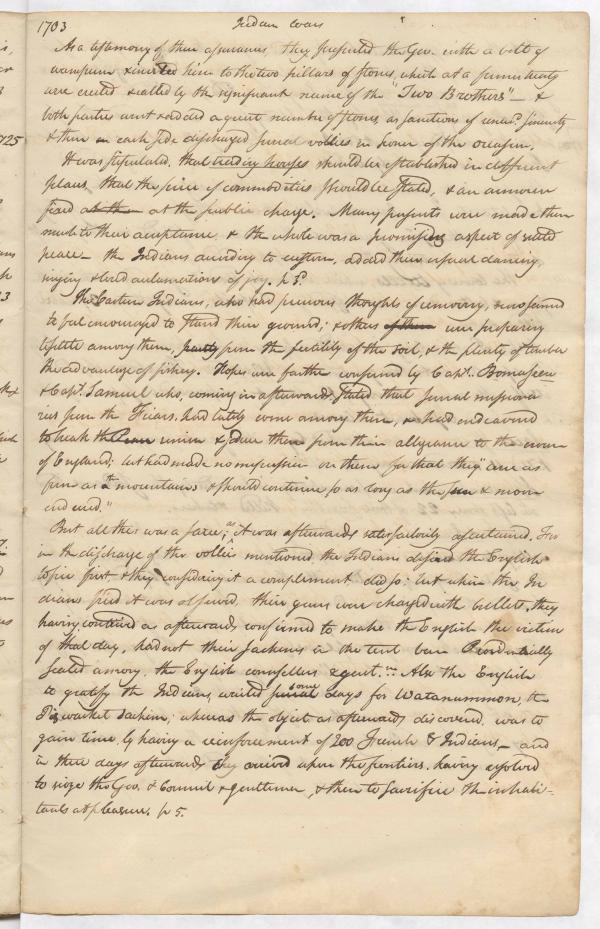 1703 Indian Wars
As a testimony of their assurances they presented the Gov. with a belt of
wampum & invited him to the two pillars of stones, which at a former treaty
were erected & called by the significant name of the "Two Brothers" — &
both parties went & added a great number of stones, as sanctions of unan.s sincerity
& then on each side discharged several vollies in honor of the occasion.
It was stipulated, that trading houses should be established in different
places, that the price of commodities should be stated, & an armorer
fixed at the at the public charge. Many presents were made them
much to their acceptance, & the whole was a promising aspect of settled
peace — the Indians according to custom, added their usual dancing,
singing & loud acclamations of joy. p 3.
The Eastern Indians, who had previous thoughts of removing, now seemed
to feel encouraged to stand their ground; & others of them were preparing
to settle among them, partly from the fertility of the soil, & the plenty of timber
the advantage of fishery. Hopes were farther confirmed by Capt. Bomaseen
& Capt. Samuel who, coming in afterwards, stated that several missiona
ries from the Friars, had lately come among them, & had endeavored
to break the union & seduce them from their allegiance to the crown
of England; but had made no impression on them for that they "are as
firm as ye mountains & should continue so as long as the sun & moon
endured."
But all this was a farce; as it was afterwards satisfactorily ascertained. For
in the discharge of the vollies mentioned the Indians desired the English
to fire first, & they considering it a compliment did so; but when the In
dians fired it was observed, their guns were charged with bullets, they
having contrived as afterwards confirmed to make the English the victim
of that day, had not their Sachems in the tent been Providentially
seated among the English counsellors & gent.m Also the English
to gratify the Indians, waited several some days for Watanummon, the
Pigwacket Sachem; whereas the object as afterwards discovered, was to
gain time, by having a reinforcement of 200 French & Indians — and
in three days afterwards they arrived upon the frontiers, having resolved
to seize the Gov. & Council & gentlemen, & then to sacrifice the inhabi-
tants at pleasure. p 5.